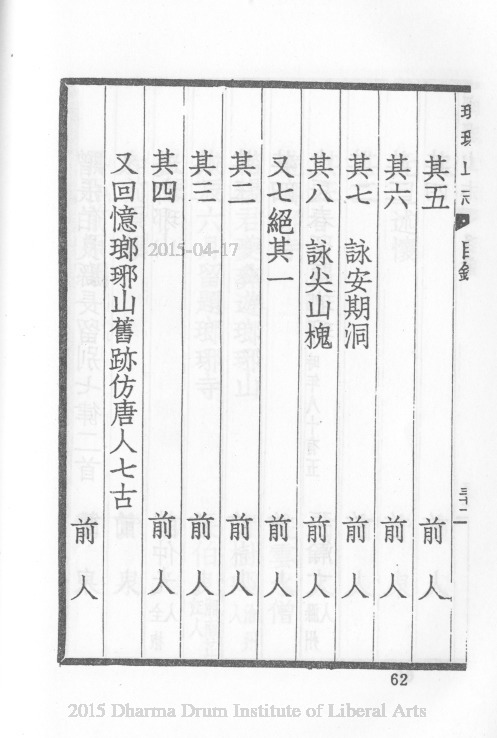 瑯琊山志 目錄 三十二
其五 前人
其六 前人
其七 詠安期洞 前人
其八 詠尖山槐 前人
又七絕其一 前人
其二 前人
其三 前人
其四 前人
又回憶瑯琊山舊跡仿唐人七古
前人
2015-04-17
62
2015 Dharma Drum Institute of Liberal Arts